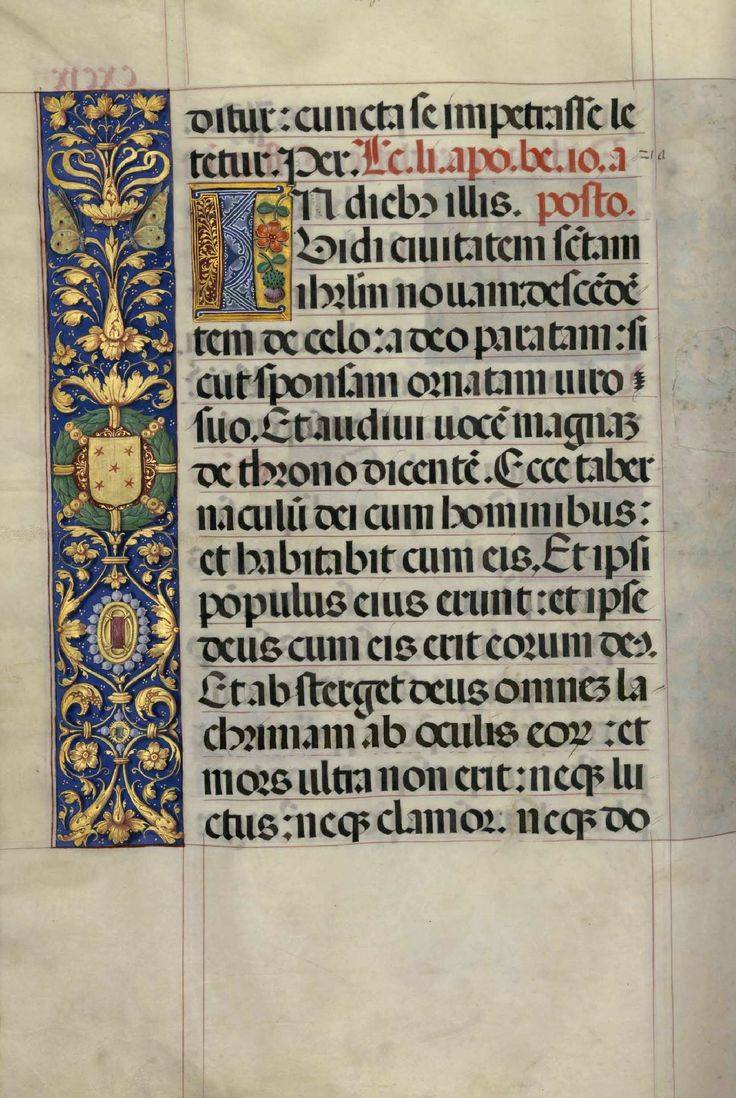 ditur : cuncta se impetrasse le
tetur. Per. Lc. li. apo. be. io. a
IN dieb᷒ illis. posto.
Vidi ciuitatem sc̄tam
ihrl̄m nouam: descēdē
tem de celo : a deo paratam : si
cut sponsam ornatam uiro
suo. Et audiui uocē magnaꝫ
de throno dicentē. Ecce taber
naculū dei cum hominibus :
et habitabit cum eis. Et ipsi
populus eius erunt : et ipse
deus cum eis erit eorum de᷒.
Et absterget deus omneꝫ la
chrimam ab oculis eoꝝ : et
mors ultra non erit : neqꝫ lu
ctus : neqꝫ clamor. neqꝫ do